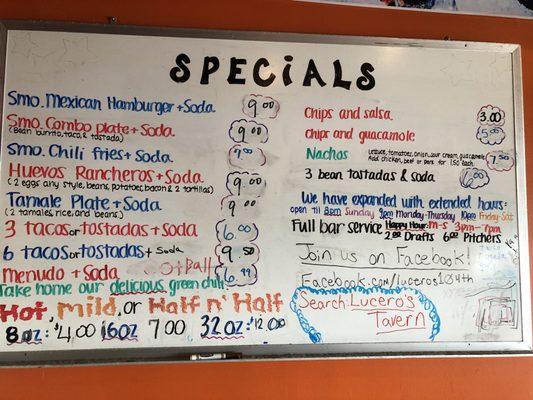 SPECiALS
Smo. Mexican Hamburger + Soda 9.00
Smo. Combo plate + Soda 9.00
(Bean burrito, taco, & tostada)
Smo. Chili fries + Soda
Huevos Rancheros + Soda 9.00
(2 eggs any style, beans, potatoes, bacon & 2 tortillas)
Tamale Plate + Soda 9.00
(2 tamales, rice, and beans)
3 tacos or tostadas + soda 6.00
6 tacos or tostadas + Soda 9.50
menudo + Soda 6.99
Take home our delicious, green chili
Hot, mild, or Half n' Half
8oz: $4.00 16oz 7.00 32oz: $12.00
Chips and salsa 3.00
Chips and guacamole 5.00
Nachos Lettuce, tomatoes, onion, sour cream, guacamole 7.50
Add chicken, beef or pork for 1.50 each
3 bean tostadas & soda 6.00
We have expanded with extended hours:
open til 8pm Sunday 9pm Monday-Thursday 10pm Friday-Sat
Full bar service Happy Hour: m-s 3pm-7pm
2.00 Drafts 6.00 Pitchers
Join us on Facebook!
Facebook.com/luceros104th
Search: Lucero's
Tavern